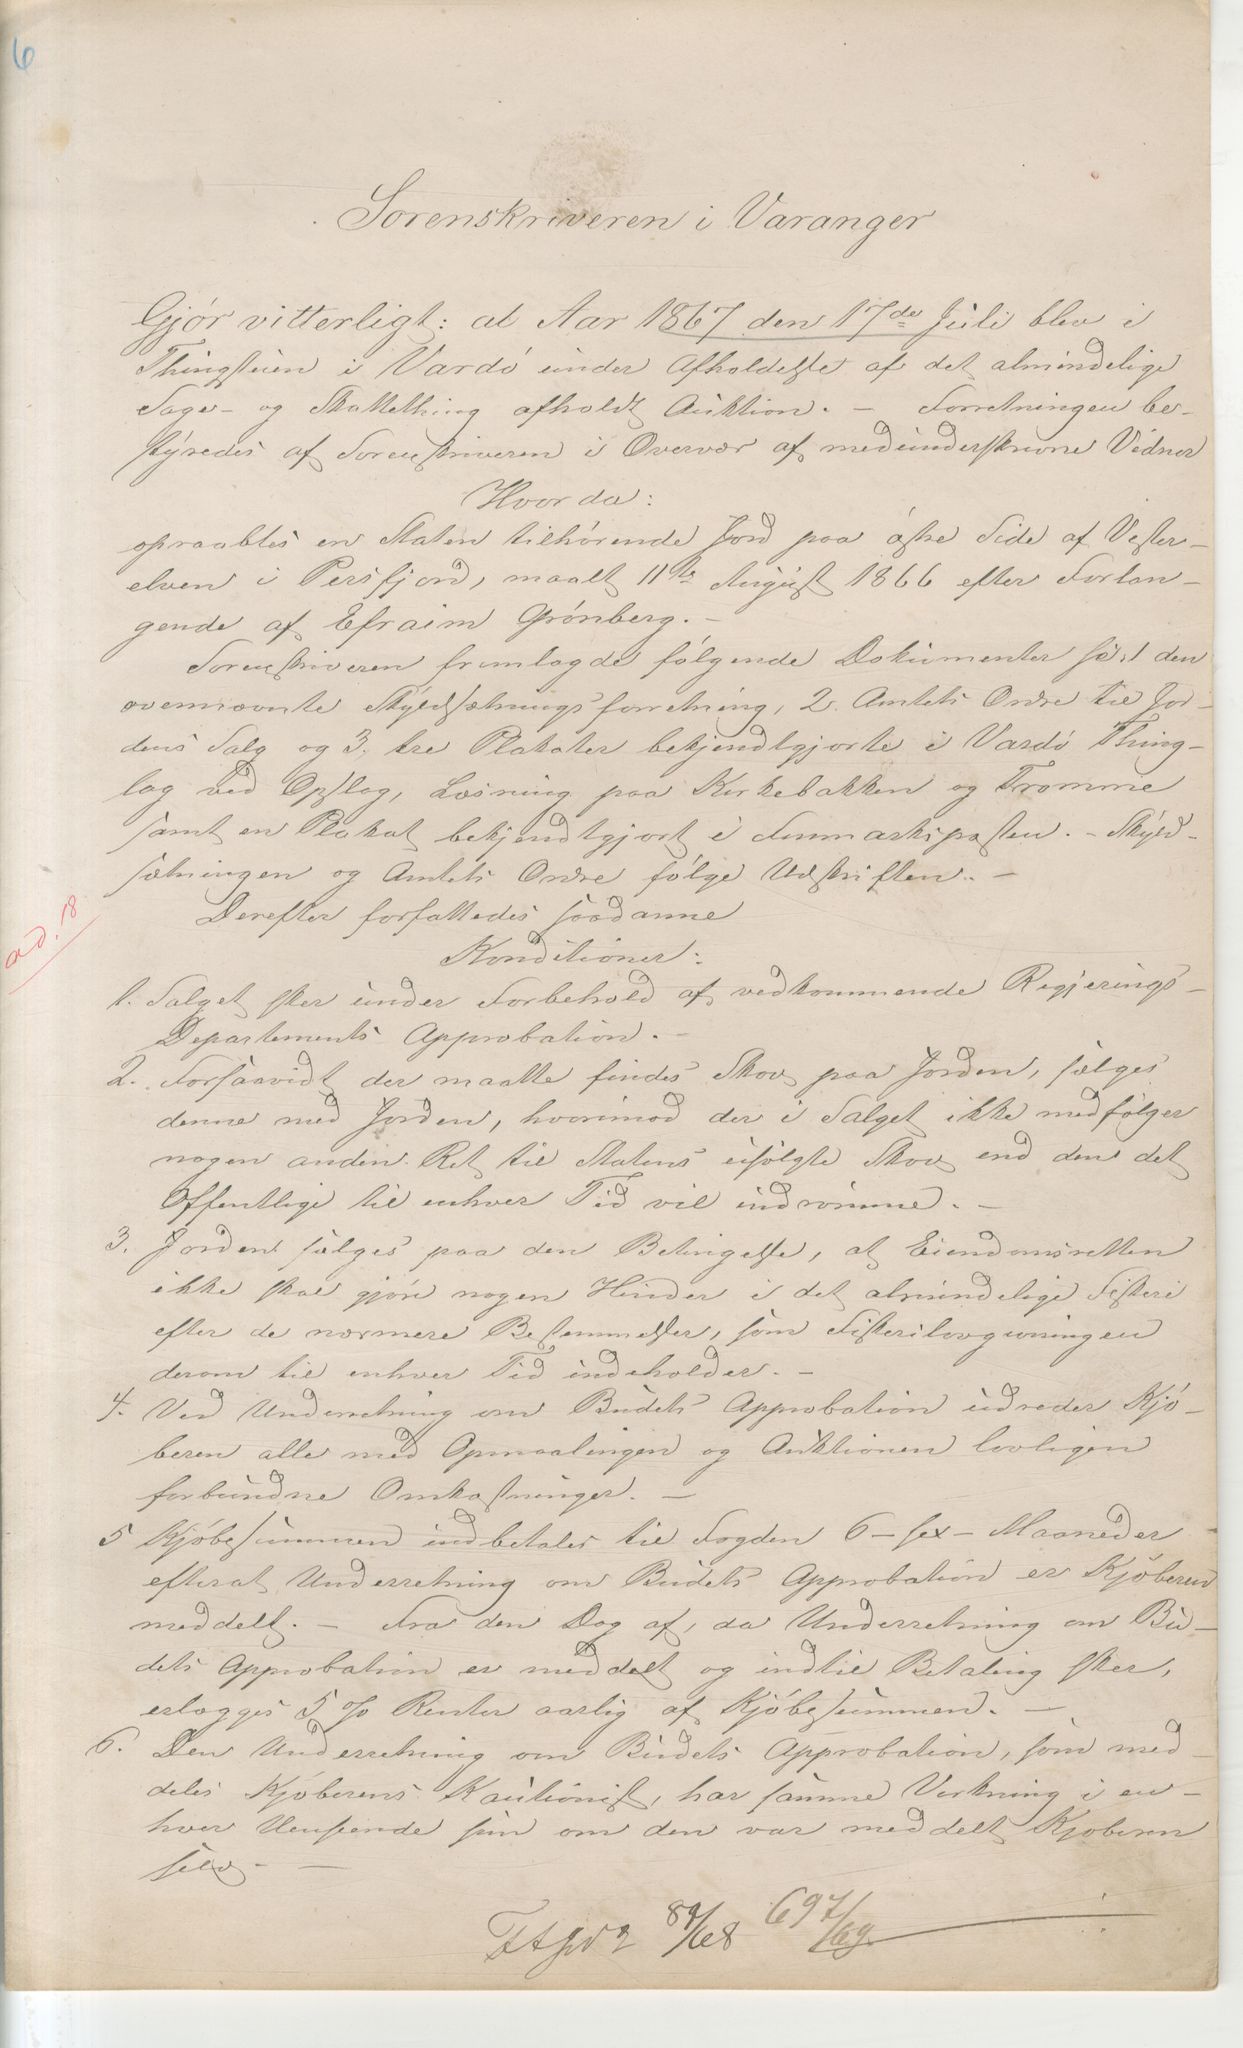 6
Sorenskriveren i Varanger
Gjör vitterligt: at Aar 1867 den 17de Juli blev i
Thingstuen i Vardö under Afholdelse af det almindelige
Sage- og Skattething afholdt Auktion. - Forretningen be-
styredes af Sorenskriveren i Overvær af medunderskrevne Vidner
Hvorda:
opraabtes en Staten tilhörende Jord paa östre Side af Vester-
elven i Persfjord, maalt 11te August 1866 efter Forlan-
gende af Efraim Grönberg. -
Sorenskriveren fremlagde fölgende Dokumenter 1 den
ovennævnte Skyldsætningsforretning, 2. Amtets Ordre til Jor-
dens Salg og 3, tre Plakater bekjendtgjorte i Vardö Thing-
lag ved Opslag, Læsning paa Kirkebakken og Tromme
samt en Plakat bekjendtgjort i Finmarksposten. - Skyld-
sætningen og Amtets Ordre fölge Udskriften. -
Derefter forfattedes saadanne
Konditioner:
1. Salget sker under Forbehold af vedkommende Regjerings-
Departements Approbation. -
2. Forsaavidt der maatte findes Skov paa Jorden, sælges
denne med Jorden, hvorimod der i Salget ikke medfölger
nogen anden Ret til Statens usolgte Skov end den det
Offentlige til enhver Tid vil indrömme. -
3. Jorden sælges paa den Betingelse, at Eiendomsretten
ikke skal gjöre nogen Hinder i det almindelige Fiskeri
efter de nærmere Bestemmelser, som Fiskerilovgivningen
derom til enhver Tid indeholder. -
4. Ved Underretning om Budets Approbation udreder Kjö-
beren alle med Opmaalingen og Auktionen lovligen
forbundne Omkostninger. -
5 Kjöbesummen indbetales til Fogden 6 - sex - Maaneder
efterat Underretning om Budets Approbation er Kjöberen
meddelt. - Fra den Dag af, da Underretning om Bu-
dets Approbation er meddelt og indtil Betaling sker,
erlægges 5 % Renter aarlig af Kjöbesummen. -
6. Den Underretning om Budets Approbation, som med-
deles Kjöberens Kautionist, har samme Virkning i en-
hver Henseende som om den var meddelt Kjöberen
selv. -
89/68 697/69
ad. 18